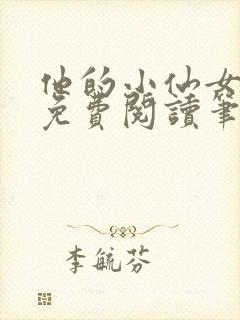 他的小仙女
免費閱讀筆
李毓芬